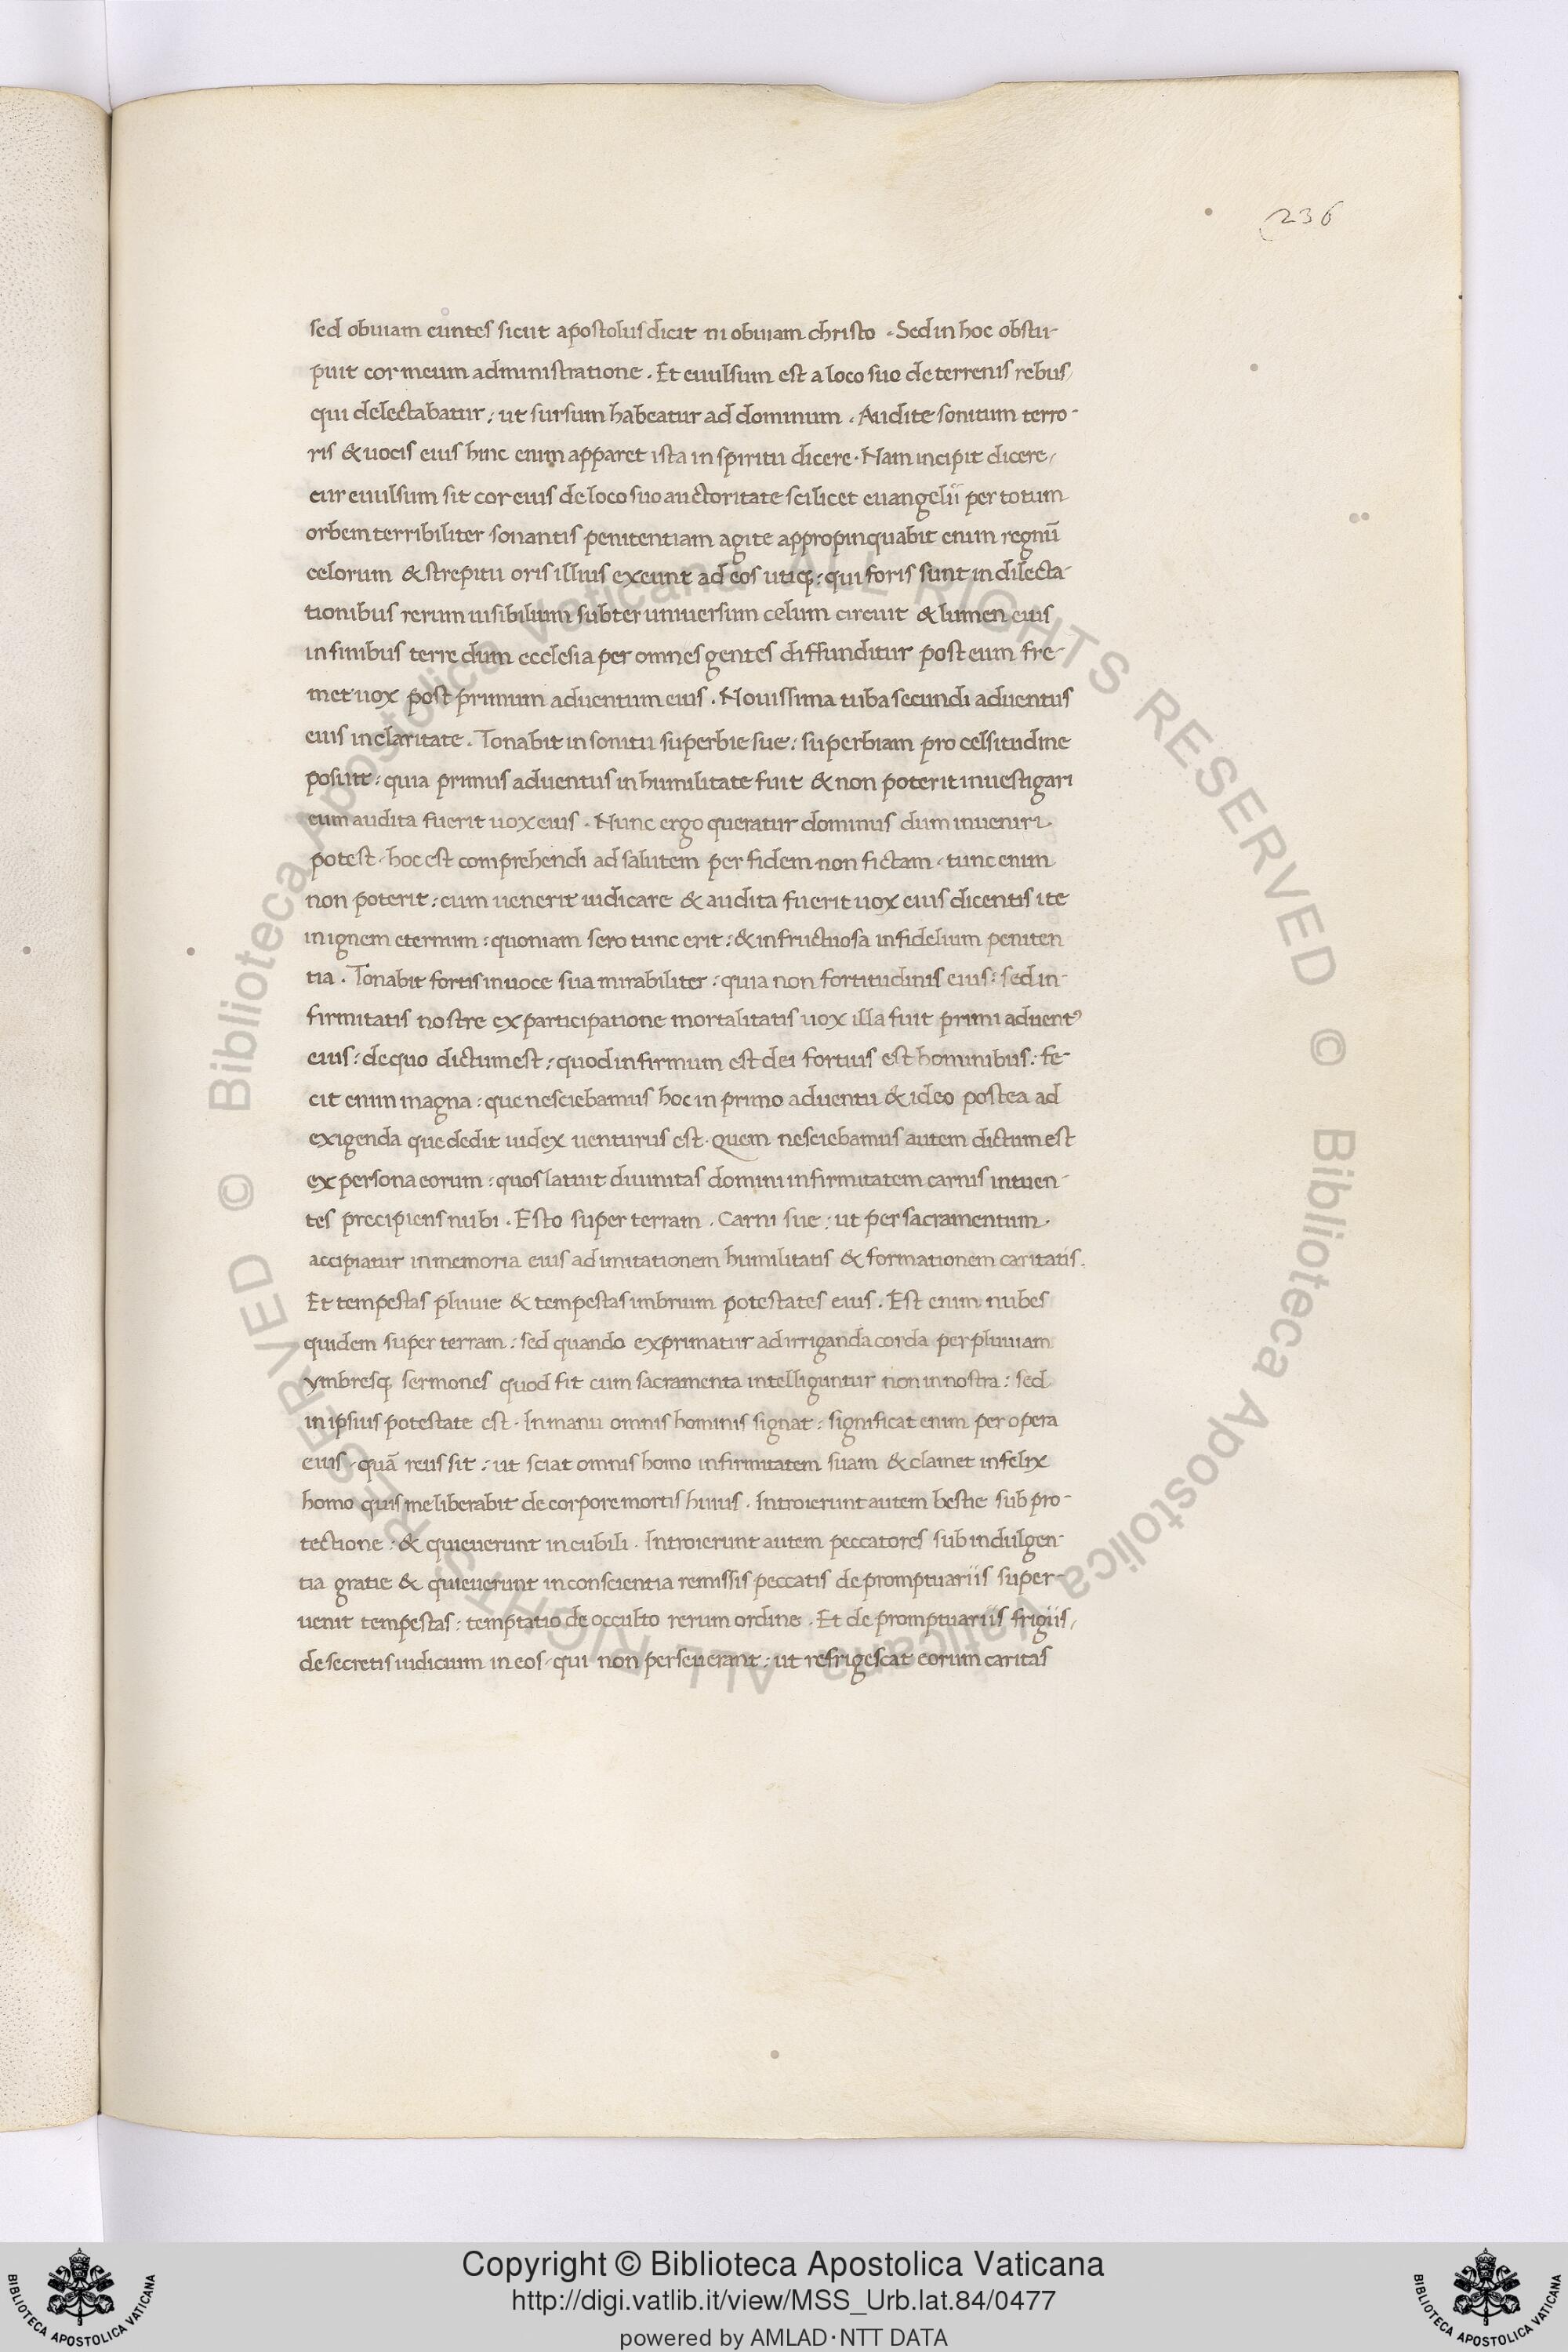 236
sed obuiam euntes sicut apostolus dicit in obuiam christo . Sed in hoc obstu-
puit cor meum administratione . Et euulsum est a loco suo de terrenis rebus/
qui delectabatur : ut sursum habeatur ad dominum . Audite sonitum terro-
ris & uocis eius hinc enim apparet ista in spiritu dicere . Nam incipit dicere/
cur euulsum sit cor eius de loco suo auctoritate scilicet euangelii per totum
orbem terribiliter sonantis penitentiam agite appropinquabit enim regnū
celorum & strepitu oris illius exeunt ad eos utiq; : qui foris sunt in dilecta-
tionibus rerum uisibilium subter uniuersum celum circuit & lumen eius
in finibus terre dum ecclesia per omnes gentes diffunditur post eum fre-
met uox post primum aduentum eius . Nouissima tuba secundi aduentus
eius in claritate . Tonabit in sonitu superbie sue : superbiam pro celsitudine
posuit : quia primus aduentus in humilitate fuit & non poterit inuestigari
cum audita fuerit uox eius . Nunc ergo queratur dominus dum inueniri
potest . hoc est comprehendi ad salutem per fidem non fictam . tunc enim
non poterit : cum uenerit iudicare & audita fuerit uox eius dicentis ite
in ignem eternum : quoniam sero tunc erit : & infructuosa infidelium peniten
tia . Tonabit fortis in uoce sua mirabiliter : quia non fortitudinis eius : sed in-
firmitatis nostre ex participatione mortalitatis uox illa fuit primi aduentꝰ
eius : de quo dictum est : quod infirmum est dei fortius est hominibus : fe-
cit enim magna : que nesciebamus hoc in primo aduentu & ideo postea ad
exigenda que dedit iudex uenturus est . Quem nesciebamus autem dictum est
ex persona eorum : quos latuit diuinitas domini infirmitatem carnis intuen-
tes precipiens nubi . Esto super terram . Carni sue : ut per sacramentum .
accipiatur in memoria eius ad imitationem humilitatis & formationem caritatis .
Et tempestas pluuie & tempestas imbrium potestates eius . Est enim nubes
quidem super terram : sed quando exprimatur ad irriganda corda per pluuiam
ymbresq; sermones quod fit cum sacramenta intelliguntur non in nostra : sed
in ipsius potestate est . In manu omnis hominis signat : significat enim per opera
eius . quā reus sit : ut sciat omnis homo infirmitatem suam & clamet infelix
homo quis me liberabit de corpore mortis huius . Introierunt autem bestie sub pro-
tectione : & quieuerunt in cubili . Introierunt autem peccatores sub indulgen-
tia gratie & quieuerunt in conscientia remissis peccatis de promptuariis super-
uenit tempestas : temptatio de occulto rerum ordine . Et de promptuariis frigus/
de secretis iudicium in eos . qui non perseuerant : ut refrigescat eorum caritas
© Biblioteca Apostolica Vaticana ALL RIGHTS RESERVED
© Biblioteca Apostolica Vaticana ALL RIGHTS RESERVED
BIBLIOTECA APOSTOLICA VATICANA
Copyright © Biblioteca Apostolica Vaticana
http://digi.vatlib.it/view/MSS_Urb.lat.84/0477
powered by AMLAD·NTT DATA
BIBLIOTECA APOSTOLICA VATICANA